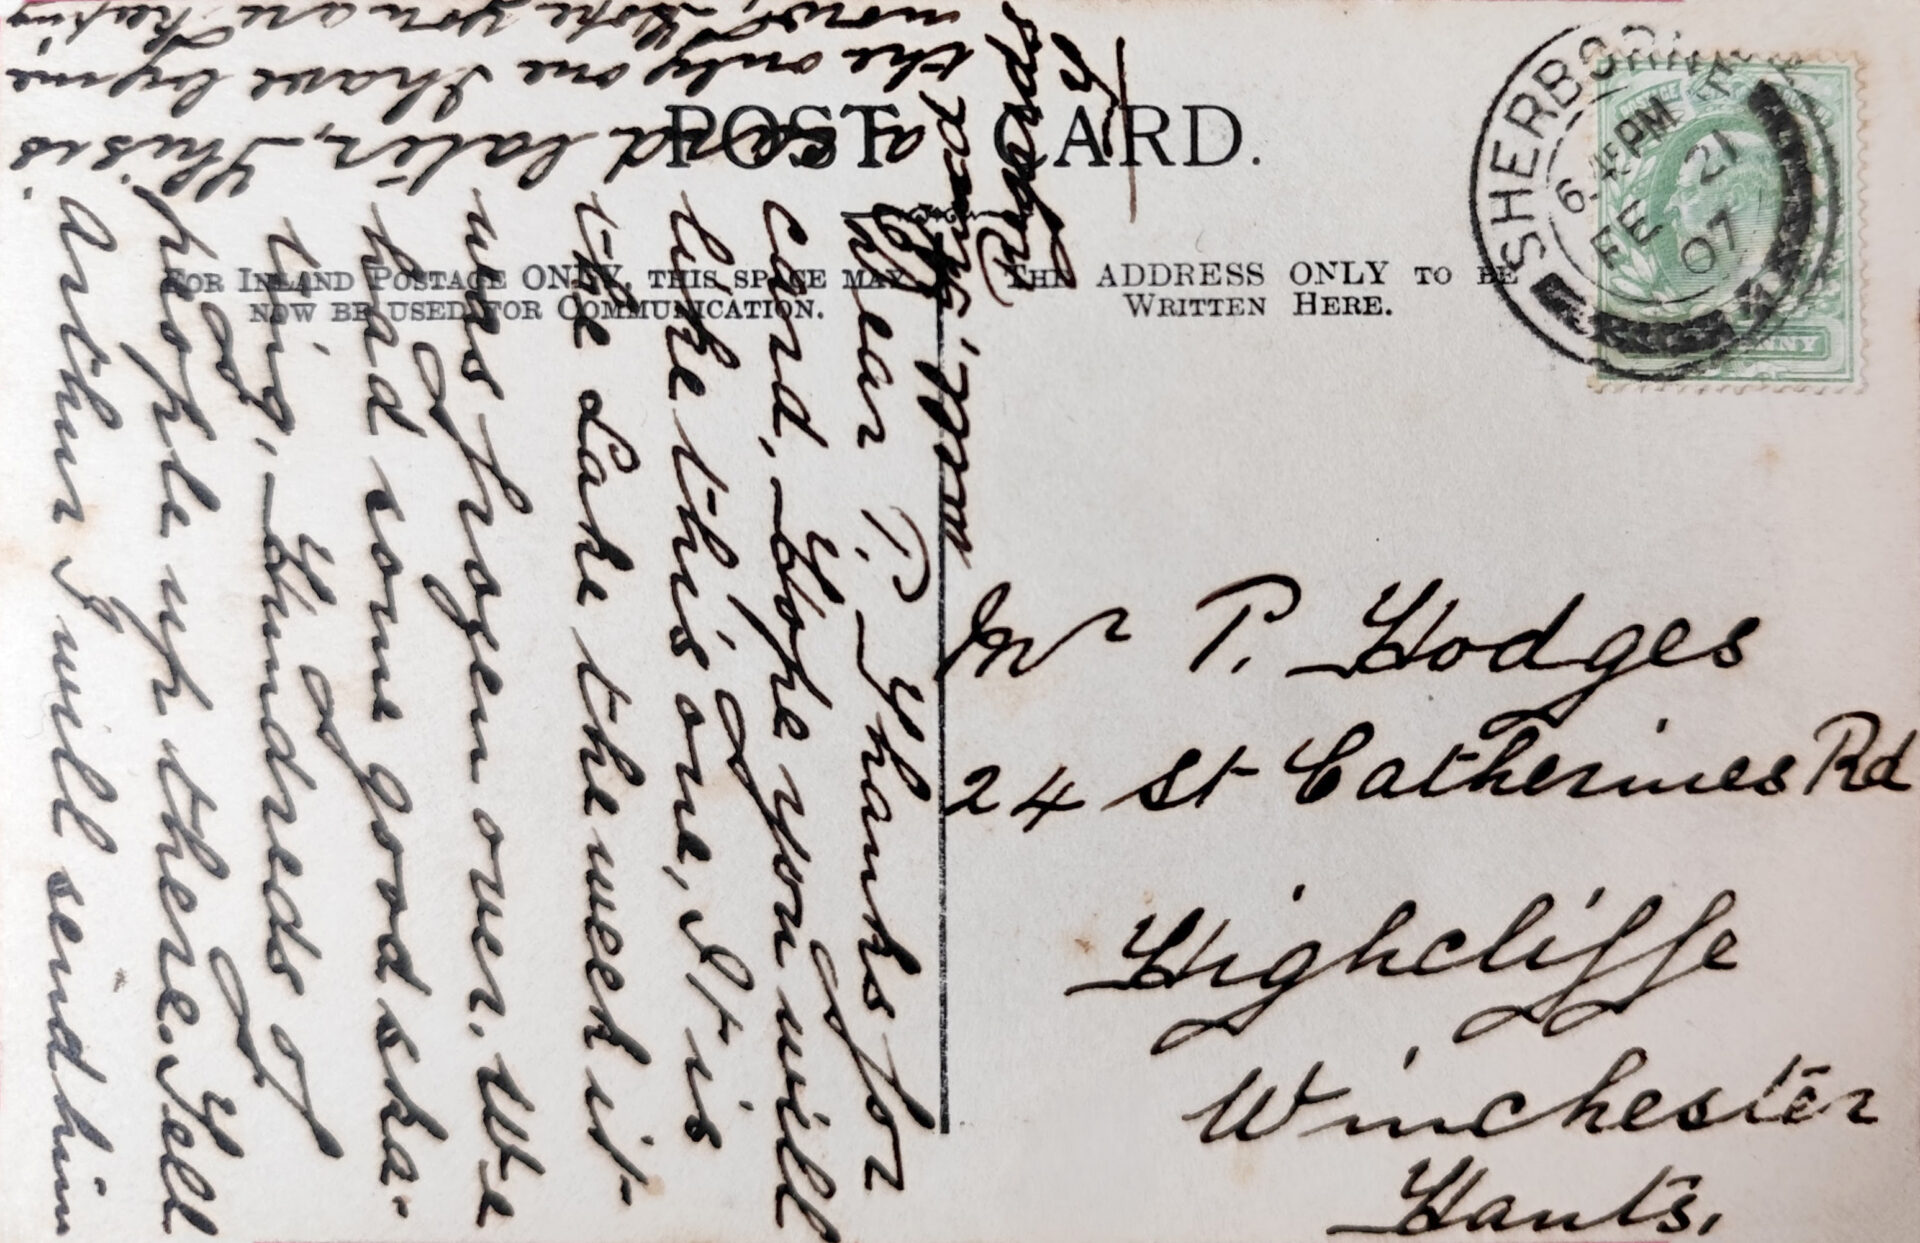 POST CARD.
FOR INLAND POSTAGE ONLY, THIS SPACE MAY
NOW BE USED FOR COMMUNICATION.
THE ADDRESS ONLY TO BE
WRITTEN HERE.
SHERBORNE
6.45PM
FE 21
07
Dear P. Thanks for
card, Hope you will
like this one, It is
the Lake the week it
was frozen over. We
had some good ska-
ting, Hundreds of
people up there. Tell
Arthur I will send him
a card later, This is
the only one I have by me
now, Hope you are keeping
Mr P. Hodges
24 St Catherines Rd
Highcliffe
Winchester
Hants,